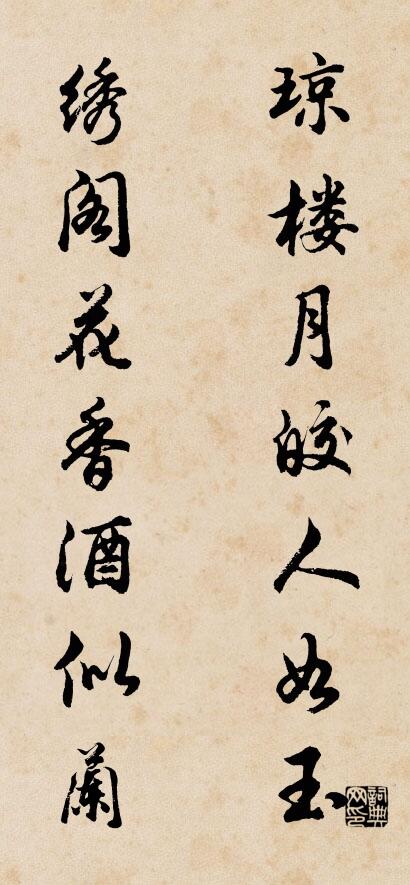 琼楼月皎人如玉
绣阁花香酒似蘭
詞典网印